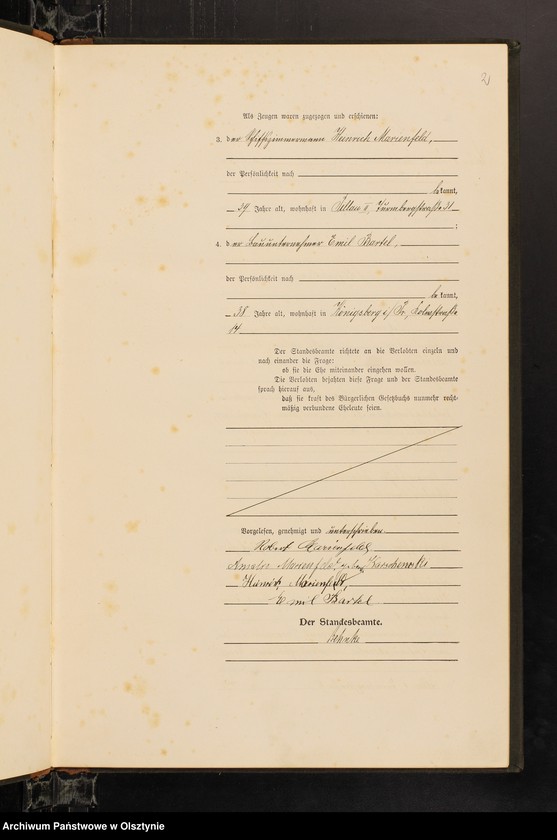 2
Als Zeugen waren zugezogen und erschienen:
3. der Schiffszimmermann Heinrich Marienfeld,
der Persönlichkeit nach
bekannt,
34 Jahre alt, wohnhaft in Pillau II, Turmbergstraße 21
;
4. der Bauunternehmer Emil Bartel,
der Persönlichkeit nach
bekannt,
38 Jahre alt, wohnhaft in Königsberg i/Pr.,
Der Standesbeamte richtete an die Verlobten einzeln und
nach einander die Frage:
ob sie die Ehe miteinander eingehen wollen.
Die Verlobten bejahten diese Frage und der Standesbeamte
sprach hierauf aus,
daß sie kraft des Bürgerlichen Gesetzbuchs nunmehr recht-
mäßig verbundene Eheleute seien.
Vorgelesen, genehmigt und unterschrieben
Robert Marienfeld
Marienfeld geb.
Heinrich Marienfeld,
Emil Bartel
Der Standesbeamte.
Archiwum Państwowe w Olsztynie